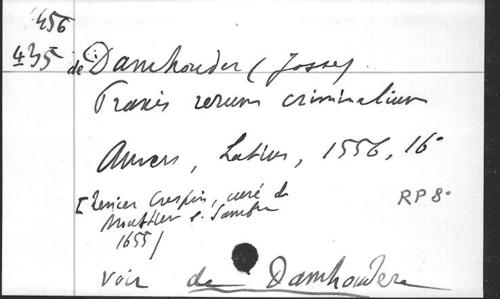 456
435
de Damhouder (Josse)
Praxis rerum criminalium
Anvers, Latius, 1556, 16°
Crespin, curé de
s. Sambre
1655)
RP 8°
voir de Damhoudere